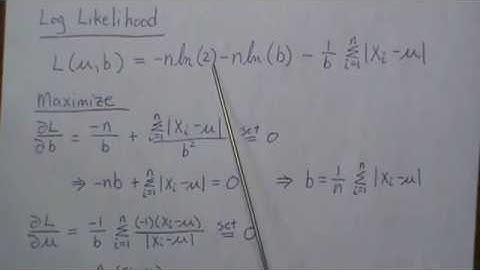 Log Likelihood
L(μ,b) = -n ln(2) - n ln(b) - 1/b Σ_{i=1}^{n} |Xi-μ|
Maximize
∂L/∂b = -n/b + Σ_{i=1}^{n} |Xi-μ| / b² set= 0
⇒ -nb + Σ_{i=1}^{n} |Xi-μ| = 0 ⇒ b = 1/n Σ_{i=1}^{n} |Xi-μ|
∂L/∂μ = -1/b Σ_{i=1}^{n} (-1)(Xi-μ) / |Xi-μ| set= 0